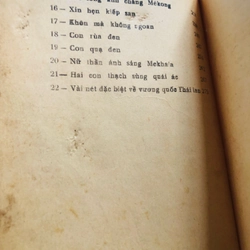 chàng Mekong
16 — Xin hẹn kiếp sau
17 — Khùn mà không ngoan
18 — Con rùa đen
19 — Con quạ đen
20 — Nữ thần ánh sáng Mekhala
21 — Hai con thạch sùng quái ác
22 — Vài nét đặc biệt về vương quốc Thái